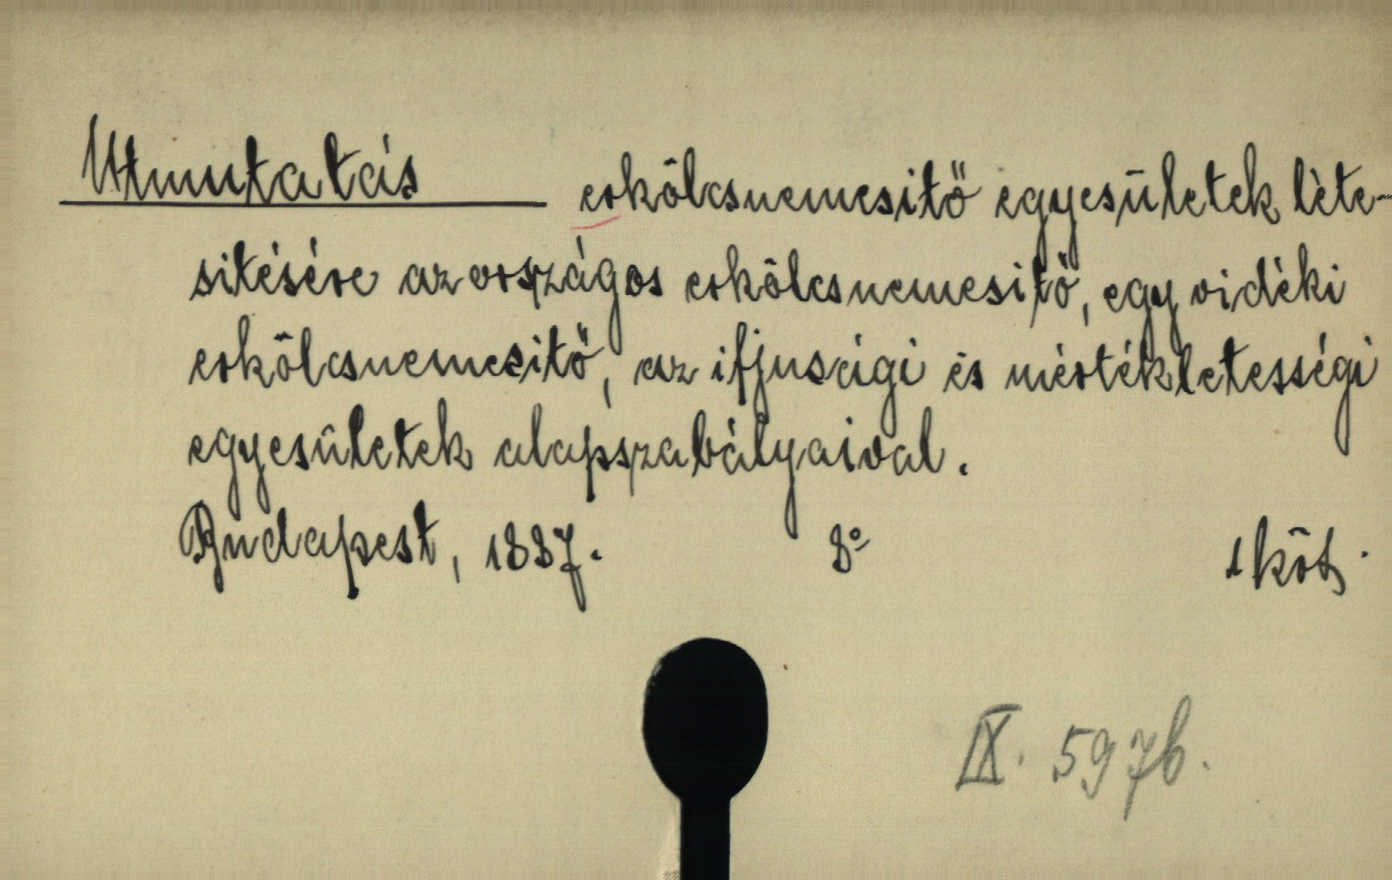 Utmutatás erkölcsnemesitő egyesületek léte-
sitésére az országos erkölcsnemesitő, egy vidéki
erkölcsnemesitő, az ifjusági és mértékletességi
egyesületek alapszabályaival.
Budapest, 1887. 8° 1 köt.
IX. 597b.